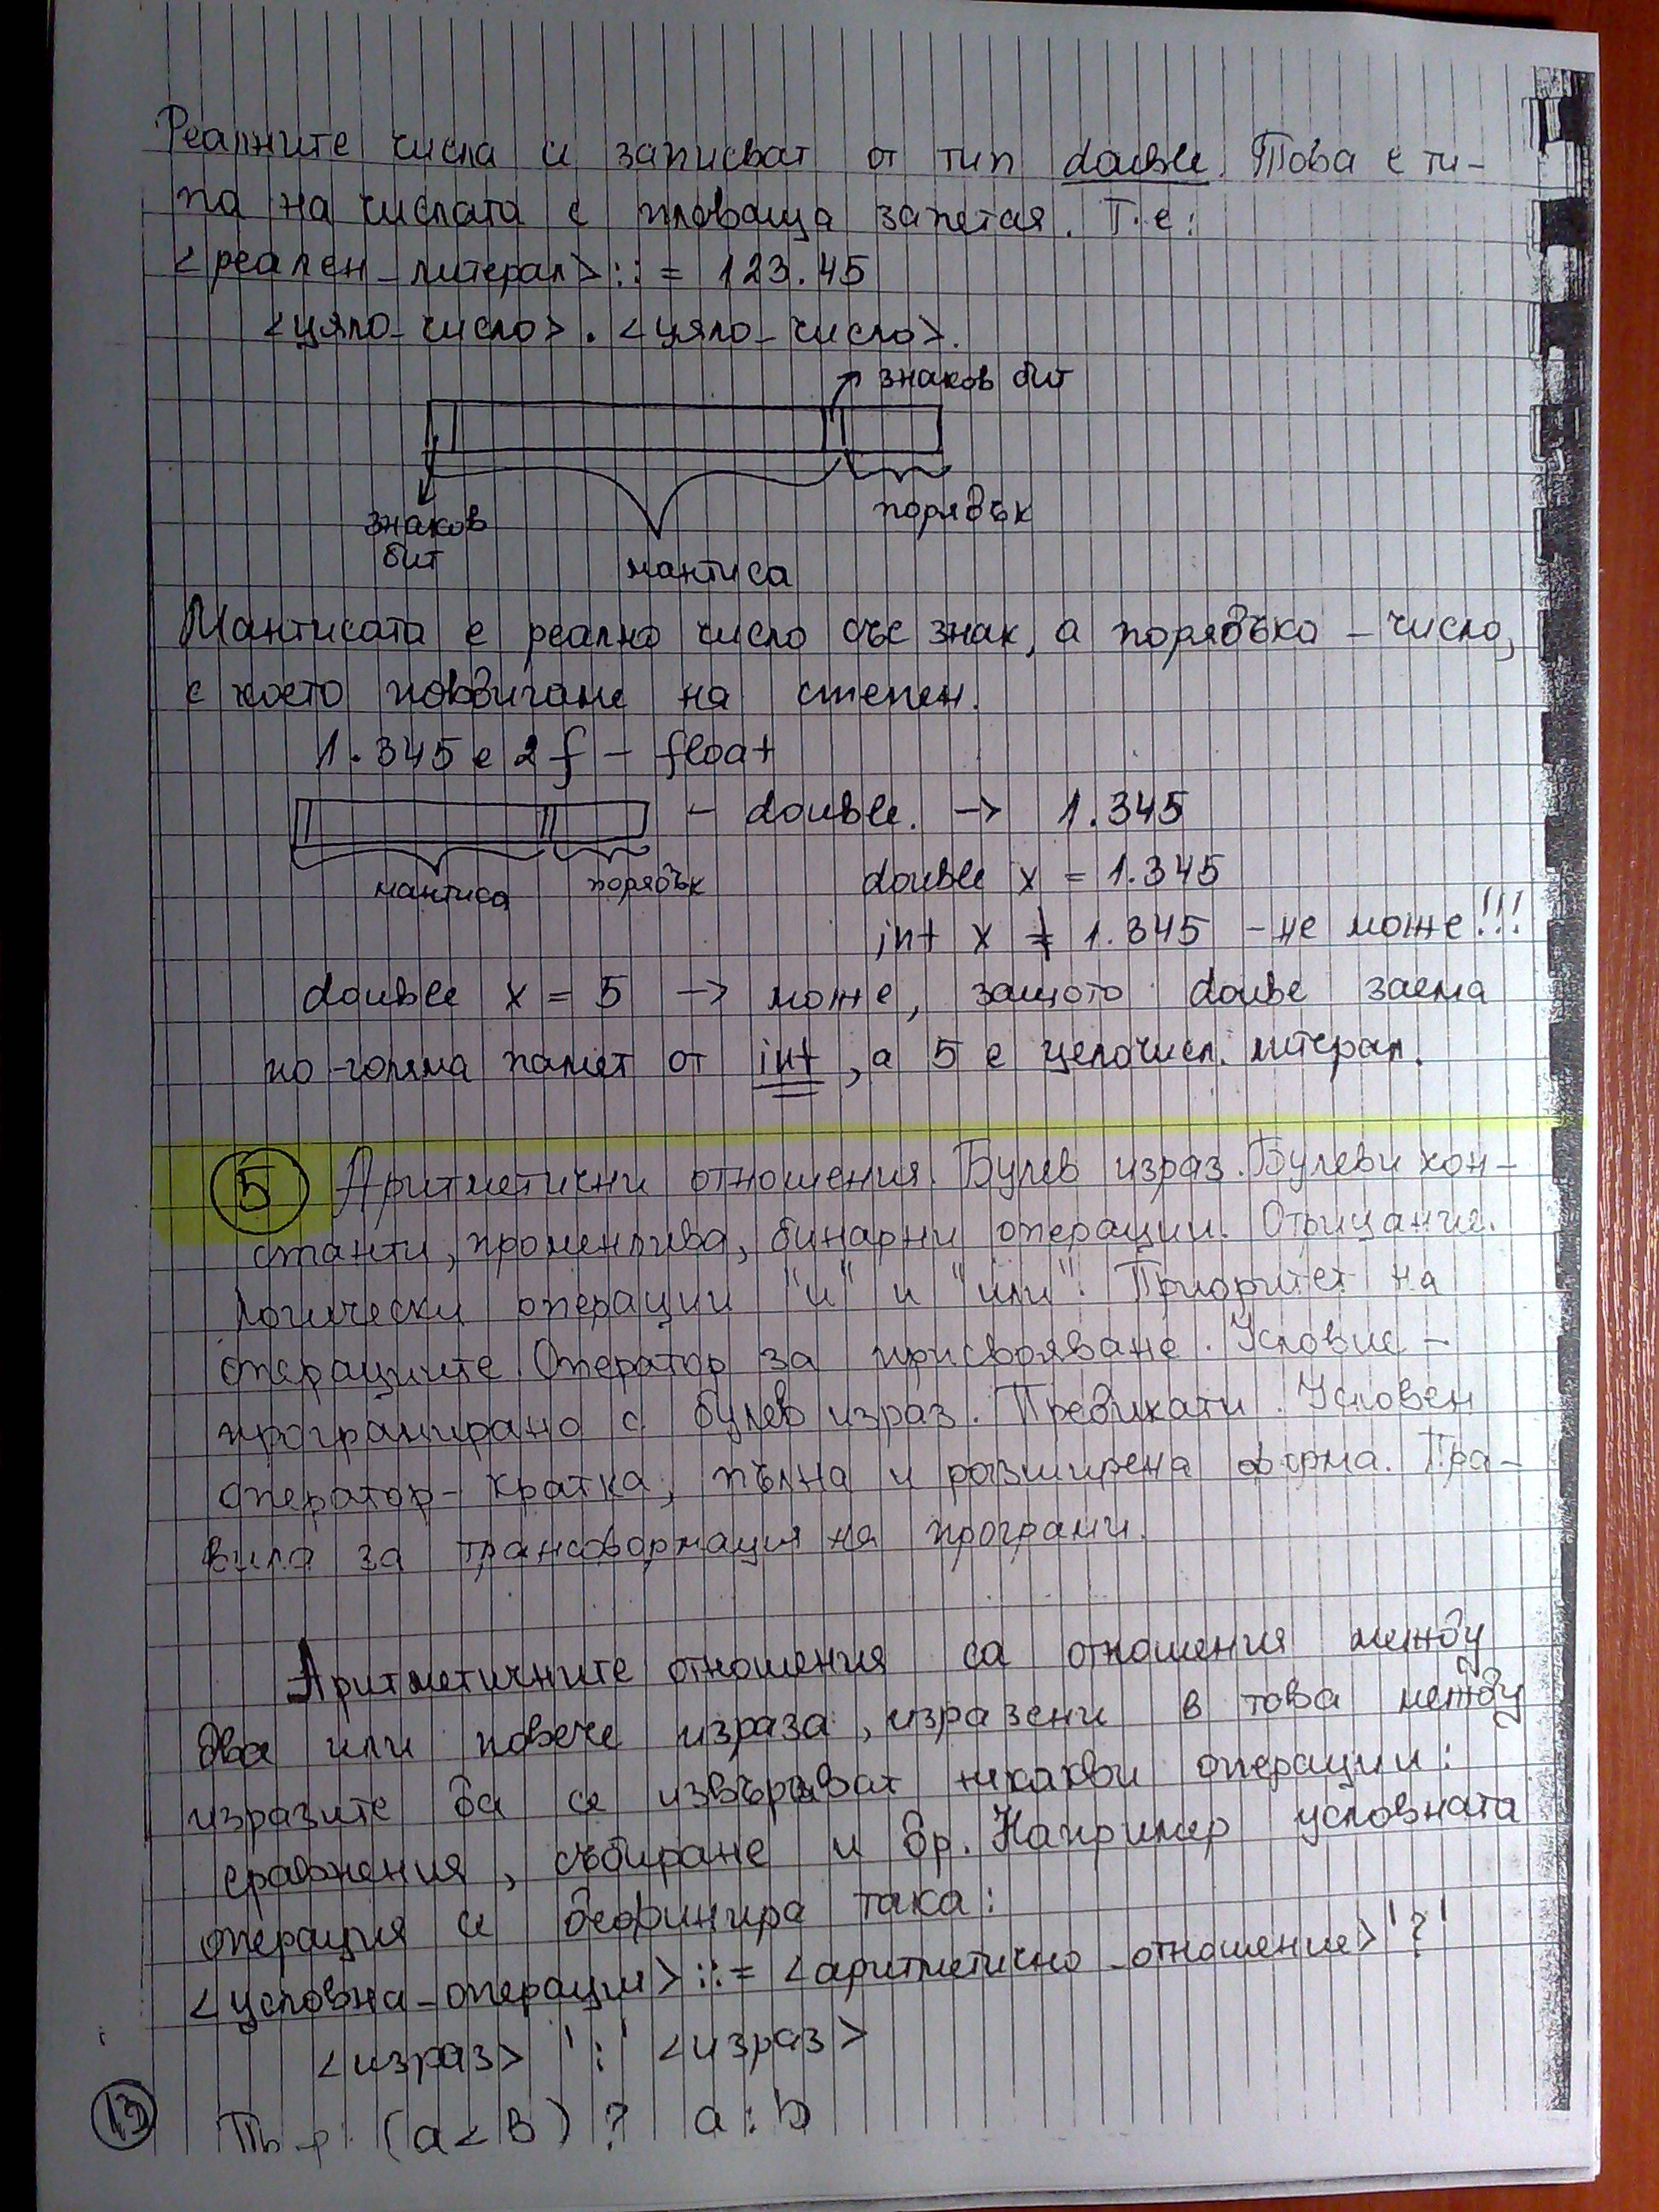 Реалните числа се записват от тип double. Това е ти-
па на числата с плаваща запетая. Т.е:
<реален_литерал>::= 123.45
<цяло-число>.<цяло-число>.
знаков бит
знаков
бит
порядък
мантиса
Мантисата е реално число със знак, а порядъка – число,
с което повдигаме на степен.
1.345e2f – float
– double. → 1.345
мантиса порядък
double x = 1.345
int x ≠ 1.345 – не може!!!
double x = 5 → може, защото double заема
по-голяма памет от int, а 5 е целочисл. литерал.
5 Аритметични отношения. Булев израз. Булеви кон-
станти, променлива, бинарни операции. Отрицание.
Логически операции "и" и "или". Приоритет на
операциите. Оператор за присвояване. Условие –
програмирано с булев израз. Предикати. Условен
оператор – кратка, пълна и разширена форма. Пра-
вила за трансформация на програми.
Аритметичните отношения са отношения между
два или повече израза, изразени в това между
изразите да се извършват някакви операции:
сравнения, събиране и др. Например условната
операция се дефинира така:
<условна_операция>::= <аритметично_отношение>'?'
<израз> ':' <израз>
Пр: (a<b)? a:b
13